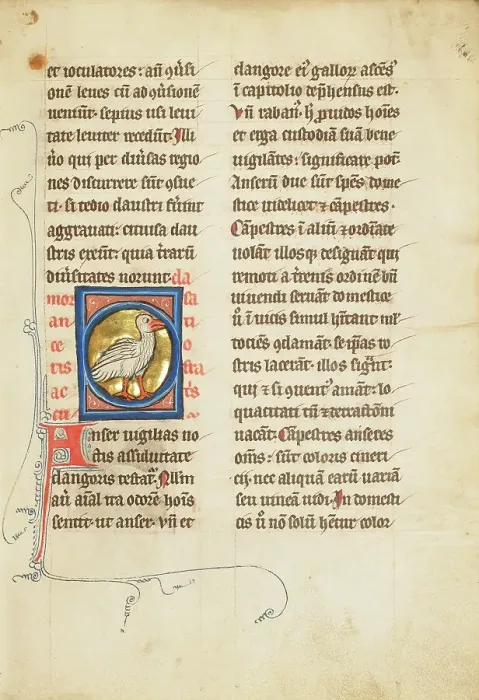 et ioculatores: añ ꝯũsi
onẽ leues cũ ad ꝯũsionẽ
ueniũt. sepius usi leui
tate leuiter recedũt. Illi
ũo qui per diũsas regio
nes discurrere sũt ꝯsue
ti. si tedio claustri fũint
aggrauati: citius a clau
stris exeũt. quia t̃rarũ
diũsitates norunt. da
mor sa
an ti
ce o
tris stra
ac tis
Anser uigilias no
ctis assiduitate
clangoris testat᷑. Nllm̃
aũ aĩal ita odorẽ hoĩs
sentit. ut anser. vñ et
clangore ei᷒ galloꝝ ascẽs᷒
ĩ capitolio dep̃hensus est.
vñ raban᷒. h̃ p̃uidos hoĩes
et erga custodiã suã bene
uigilãtes: significare pot̃.
Anserũ due sũt sp̃es. dome
stice uidelicet ⁊ cãpestres.
Cãpestres ĩ altũ ⁊ ordĩate
uolãt. illosq; designãt qui
remoti a t̃renis ordinẽ bñ
uiuendi seruãt. domestice
ũ ĩ uicis simul hĩtant. ml̃
tociẽs ꝯclamãt. se ip̃as ro
stris lacerãt. illos sigñt:
qui ⁊ si ꝯuent᷒ amãt: lo
quacitati tñ ⁊ detractõni
uacãt. Cãpestres anseres
om̃s: sũt coloris cineri
cij. nec aliquã earũ uariã
seu uineã uidi. In domesti
cis ũ nõ solũ hẽtur color